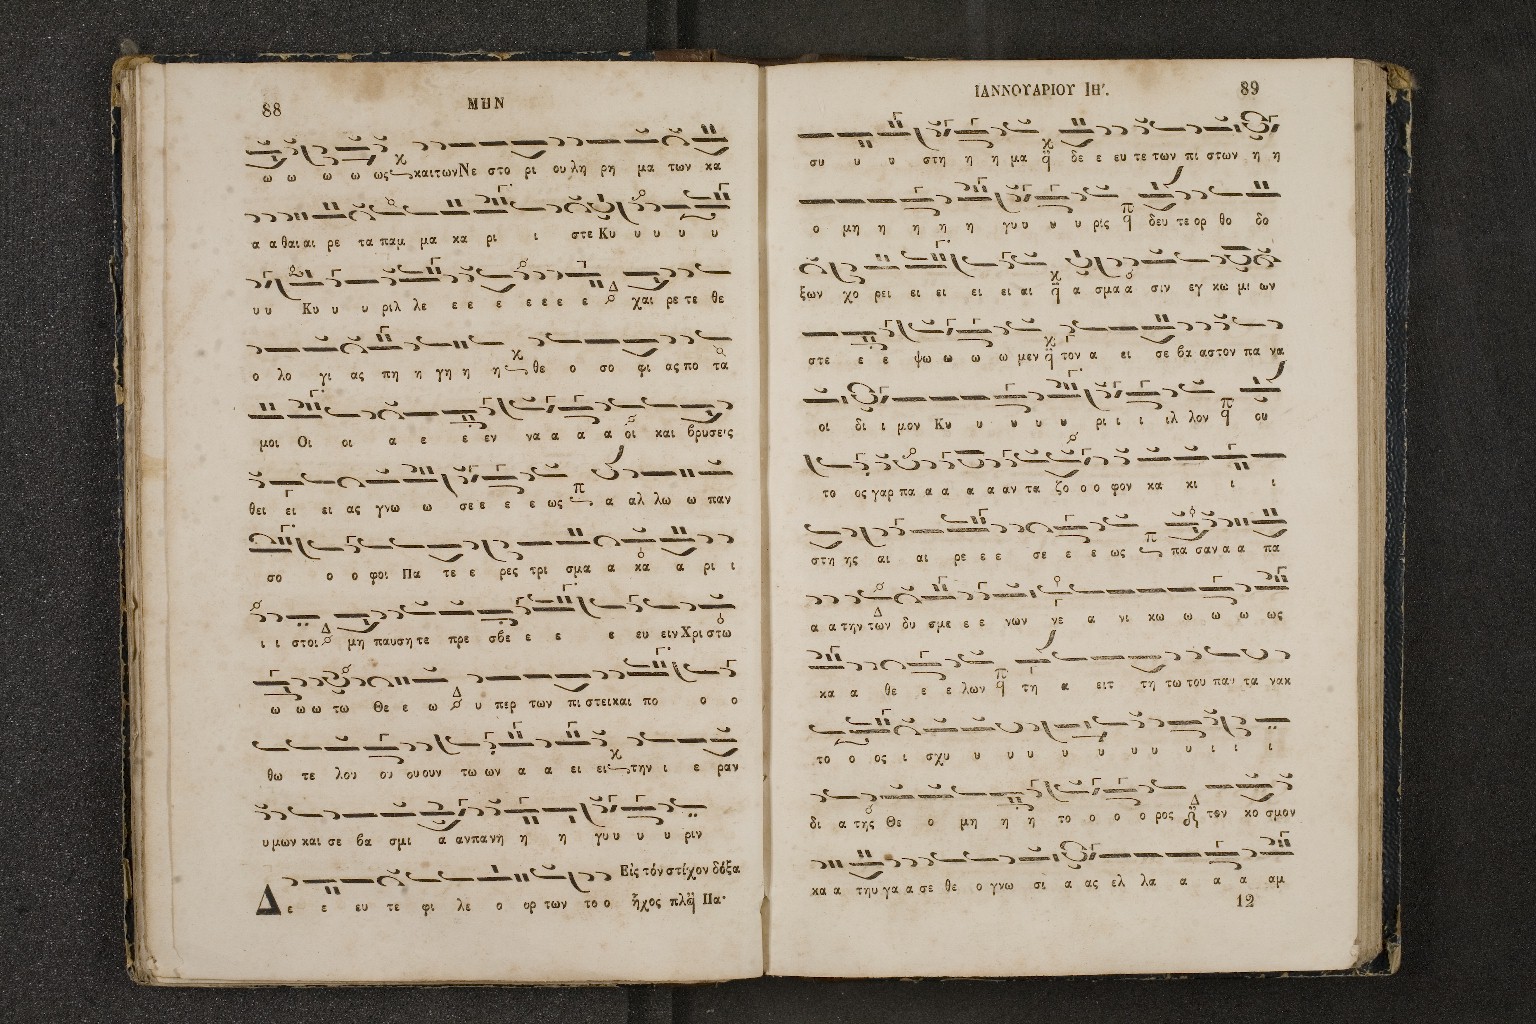 88
ΜΗΝ
ω ω ω ω ως και των Νε στο ρι ου λη ρη μα των κα
α α θαι αι ρε τα παμ μα κα ρι ι στε Κυ υ υ υ υ
υ υ Κυ υ υ ριλ λε ε ε ε ε ε ε ε χαι ρε τε θε
ο λο γι ας πη η γη η η θε ο σο φι ας πο τα
μοι Οι οι α ε ε εν να α α α οι και βρυσεις
θει ει ει ας γνω ω σε ε ε ε ως α αλ λω ω παν
σο ο ο φοι Πα τε ε ρες τρι σμα α κα α ρι ι
ι ι στοι μη παυση τε πρε σβε ε ε ε ευ ειν Χρι στω
ω ω ω τω Θε ε ω υ περ των πι στει και πο ο ο
θω τε λου ου ου ουν τω ων α α ει ει την ι ε ραν
υ μων και σε βα σμι α αν πα νη η η γυ υ υ υ ριν
Εἰς τὸν στίχον δόξα
Δ ε ε ευ τε φι λε ο ορ των το ο ἦχος πλ Πα
ΙΑΝΝΟΥΑΡΙΟΥ ΙΗ'.
89
συ υ υ στη η η μα δε ε ευ τε των πι στων η η
ο μη η η η η γυ υ υ υ ρις δευ τε ορ θο δο
ξων χο ρει ει ει ει ει αι α σμα α σιν εγ κω μι ων
στε ε ε ψω ω ω ω μεν τον α ει σε βα αστον πα να
οι δι ι μον Κυ υ υ υ υ ρι ι ι ιλ λον ου
το ος γαρ πα α α α α αν τα ζο ο ο φον κα κι ι ι
στη ης αι αι ρε ε ε σε ε ε ως πα σαν α α πα
α α την των δυ σμε ε ε νων νε α νι κω ω ω ω ως
κα α θε ε ε λων τη α ειτ τη τω του παν τα νακ
το ο ος ι σχυ υ υ υ υ υ υ υ υ ι ι ι
δι α της Θε ο μη η η το ο ο ο ρος τον κο σμον
κα α τηυ γα α σε θε ο γνω σι α ας ελ λα α α α αμ
12